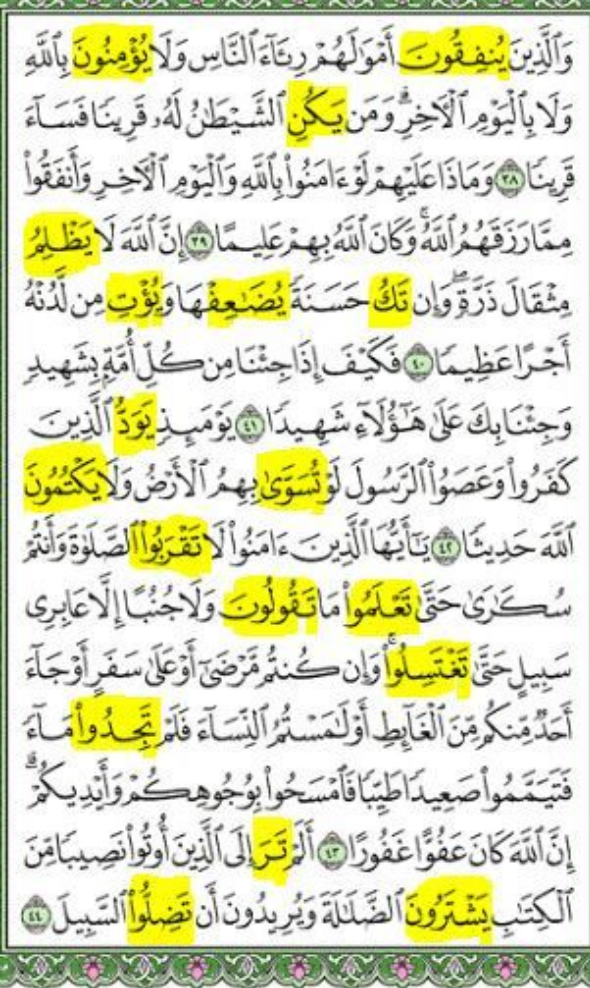 وَٱلَّذِينَ يُنفِقُونَ أَمْوَٰلَهُمْ رِئَآءَ ٱلنَّاسِ وَلَا يُؤْمِنُونَ بِٱللَّهِ
وَلَا بِٱلْيَوْمِ ٱلْـَٔاخِرِ ۗ وَمَن يَكُنِ ٱلشَّيْطَٰنُ لَهُۥ قَرِينًا فَسَآءَ
قَرِينًا ٣٨ وَمَاذَا عَلَيْهِمْ لَوْ ءَامَنُوا۟ بِٱللَّهِ وَٱلْيَوْمِ ٱلْـَٔاخِرِ وَأَنفَقُوا۟
مِمَّا رَزَقَهُمُ ٱللَّهُ ۚ وَكَانَ ٱللَّهُ بِهِمْ عَلِيمًا ٣٩ إِنَّ ٱللَّهَ لَا يَظْلِمُ
مِثْقَالَ ذَرَّةٍ ۖ وَإِن تَكُ حَسَنَةً يُضَٰعِفْهَا وَيُؤْتِ مِن لَّدُنْهُ
أَجْرًا عَظِيمًا ٤٠ فَكَيْفَ إِذَا جِئْنَا مِن كُلِّ أُمَّةٍۭ بِشَهِيدٍ
وَجِئْنَا بِكَ عَلَىٰ هَٰٓؤُلَآءِ شَهِيدًا ٤١ يَوْمَئِذٍ يَوَدُّ ٱلَّذِينَ
كَفَرُوا۟ وَعَصَوُا۟ ٱلرَّسُولَ لَوْ تُسَوَّىٰ بِهِمُ ٱلْأَرْضُ وَلَا يَكْتُمُونَ
ٱللَّهَ حَدِيثًا ٤٢ يَٰٓأَيُّهَا ٱلَّذِينَ ءَامَنُوا۟ لَا تَقْرَبُوا۟ ٱلصَّلَوٰةَ وَأَنتُمْ
سُكَٰرَىٰ حَتَّىٰ تَعْلَمُوا۟ مَا تَقُولُونَ وَلَا جُنُبًا إِلَّا عَابِرِى
سَبِيلٍ حَتَّىٰ تَغْتَسِلُوا۟ ۚ وَإِن كُنتُم مَّرْضَىٰٓ أَوْ عَلَىٰ سَفَرٍ أَوْ جَآءَ
أَحَدٌ مِّنكُم مِّنَ ٱلْغَآئِطِ أَوْ لَٰمَسْتُمُ ٱلنِّسَآءَ فَلَمْ تَجِدُوا۟ مَآءً
فَتَيَمَّمُوا۟ صَعِيدًا طَيِّبًا فَٱمْسَحُوا۟ بِوُجُوهِكُمْ وَأَيْدِيكُمْ ۗ
إِنَّ ٱللَّهَ كَانَ عَفُوًّا غَفُورًا ٤٣ أَلَمْ تَرَ إِلَى ٱلَّذِينَ أُوتُوا۟ نَصِيبًا مِّنَ
ٱلْكِتَٰبِ يَشْتَرُونَ ٱلضَّلَٰلَةَ وَيُرِيدُونَ أَن تَضِلُّوا۟ ٱلسَّبِيلَ ٤٤